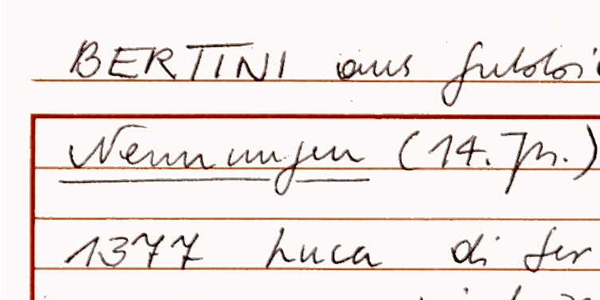 BERTINI aus
Nennungen (14. Jh.)
1377 Luca di Ser